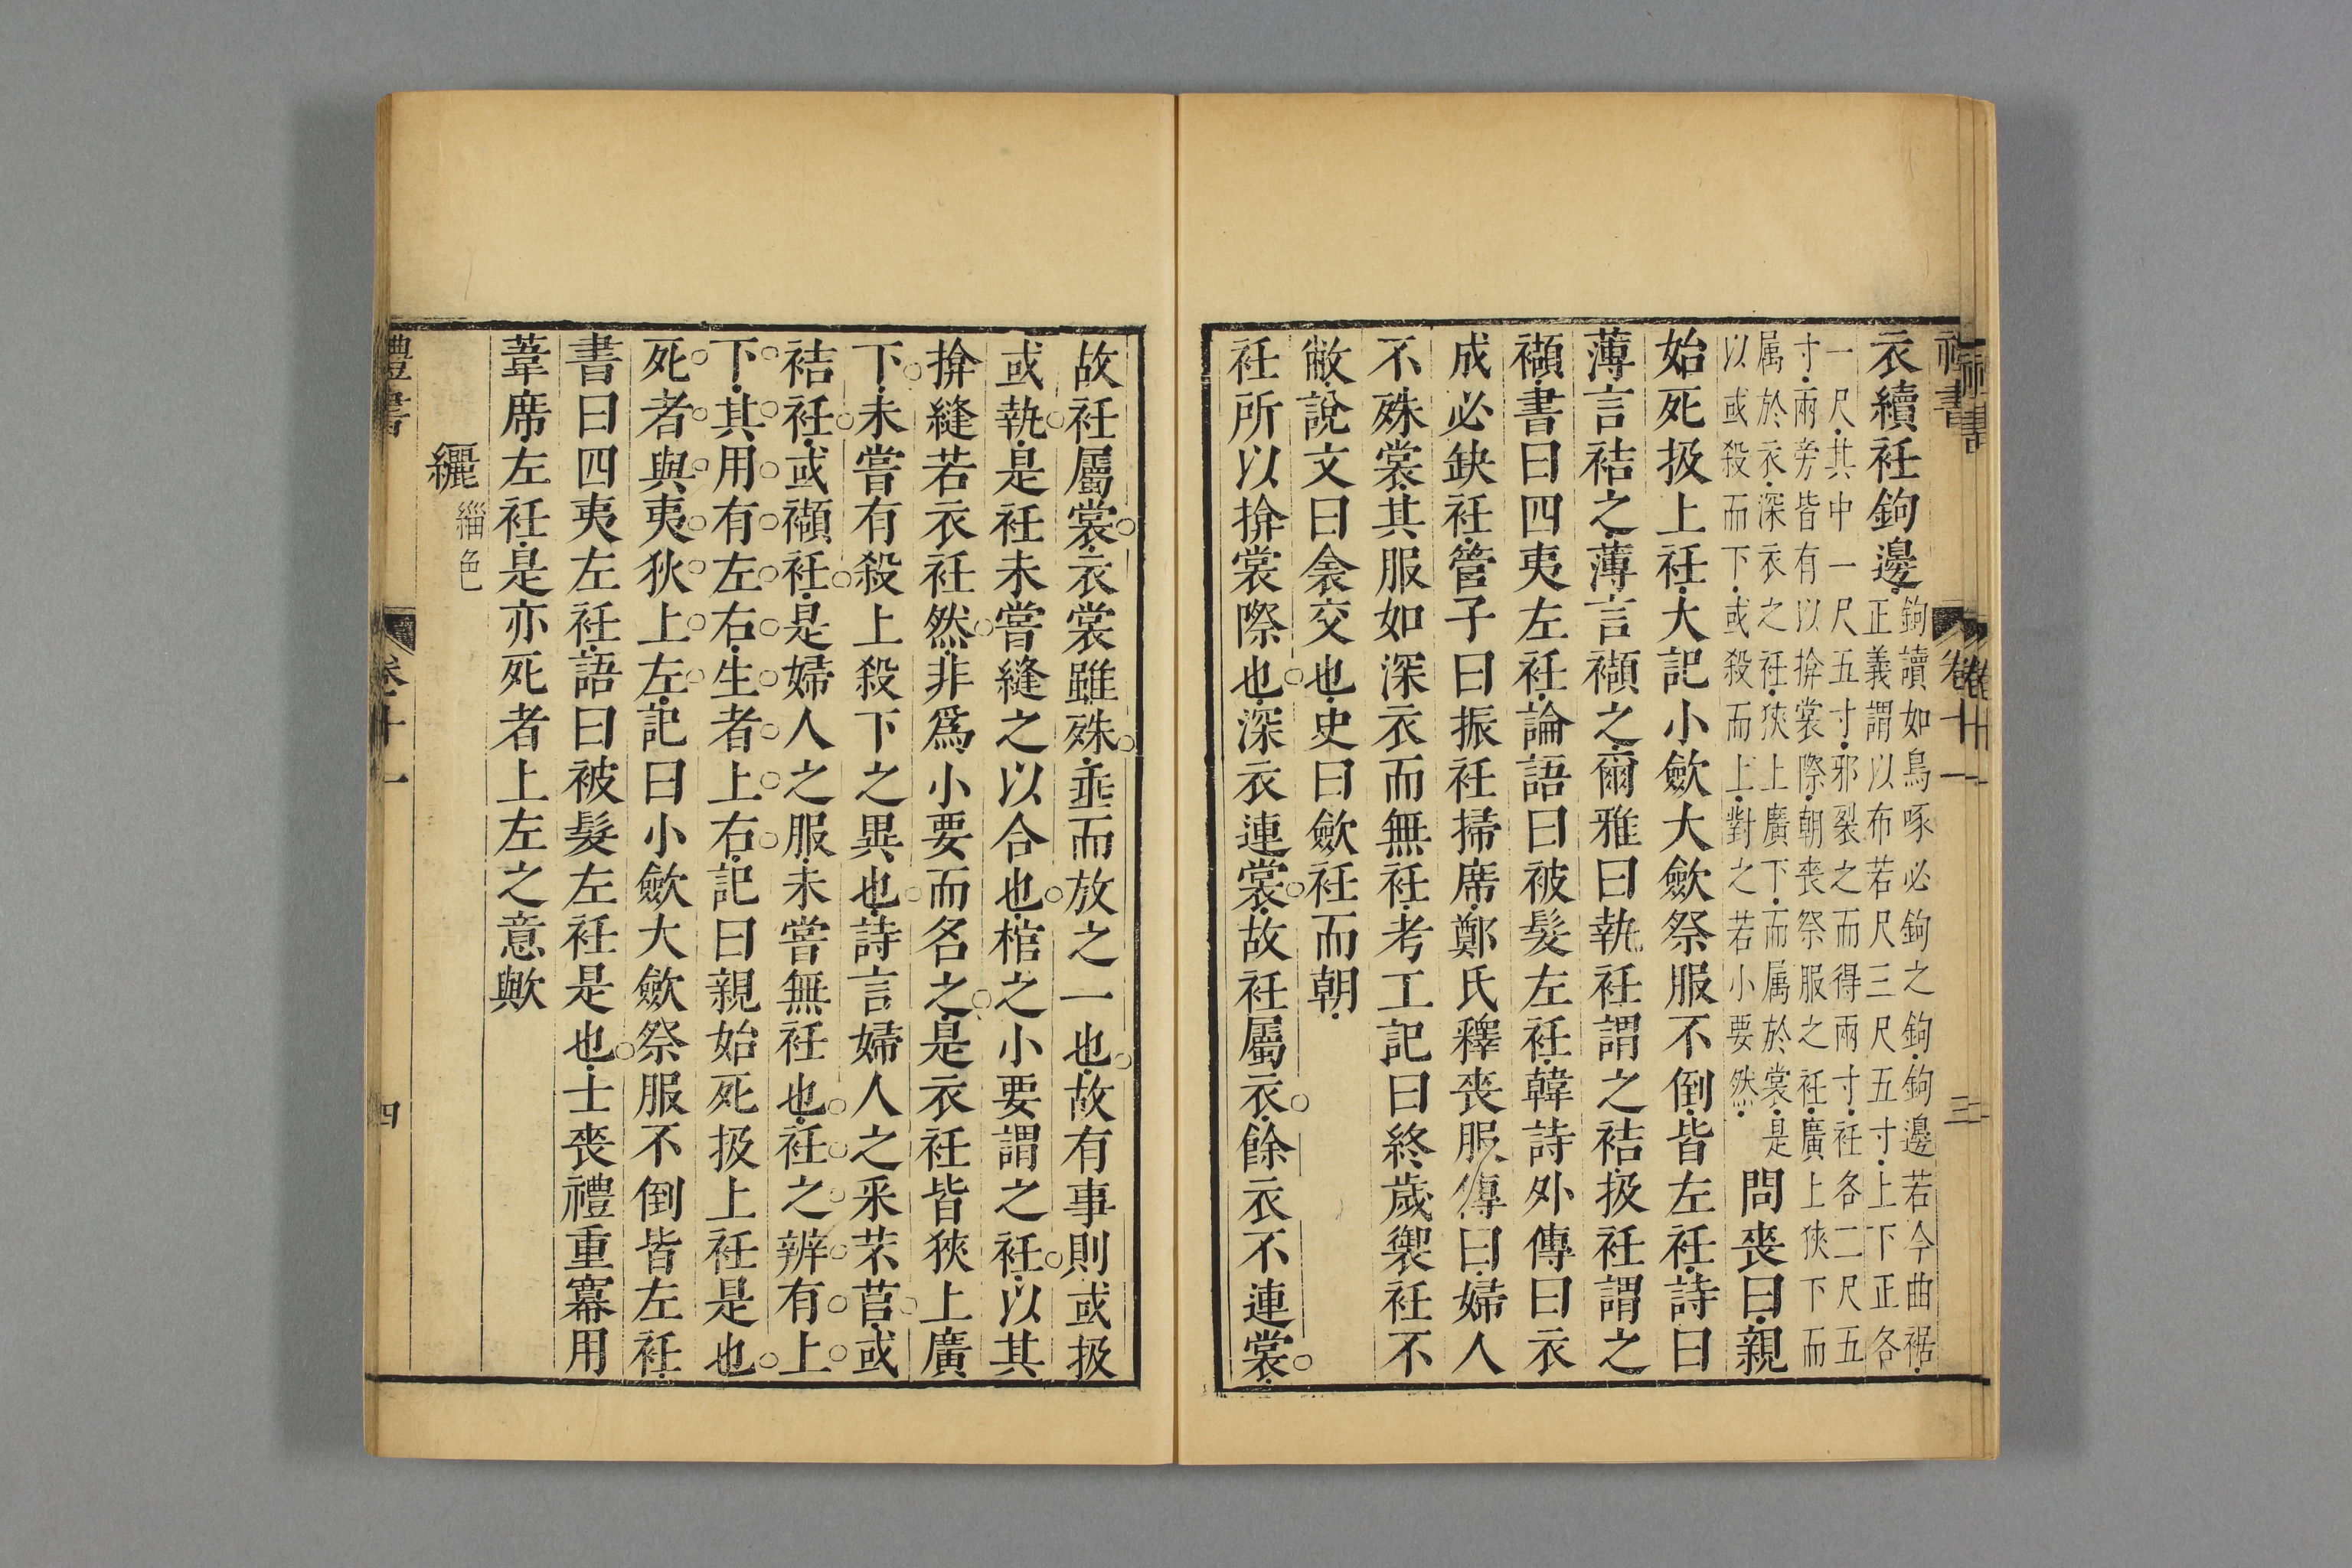 禮書
卷十一
三
衣續衽鉤邊
鉤讀如鳥啄必鉤之鉤鉤邊若今曲裾
正義謂以布若尺三尺五寸上下正各
一尺其中一尺五寸邪裂之而得兩寸衽各二尺五
寸兩旁皆有以揜裳際朝喪祭服之衽廣上狹下而
属於衣深衣之衽狹上廣下而属於裳是
以或殺而下或殺而上對之若小要然
問喪曰親
始死扱上衽大記小斂大斂祭服不倒皆左衽詩曰
薄言袺之薄言襭之爾雅曰執衽謂之袺扱衽謂之
襭書曰四夷左衽論語曰被髮左衽韓詩外傳曰衣
成必缺衽管子曰振衽掃席鄭氏釋喪服傳曰婦人
不殊裳其服如深衣而無衽考工記曰終歲禦衽不
敝說文曰衾交也史曰斂衽而朝
衽所以揜裳際也深衣連裳故衽屬衣餘衣不連裳
故衽屬裳衣裳雖殊垂而放之一也故有事則或扱
或執是衽未嘗縫之以合也棺之小要謂之衽以其
揜縫若衣衽然非爲小要而名之是衣衽皆狹上廣
下未嘗有殺上殺下之異也詩言婦人之采芣苢或
袺衽或襭衽是婦人之服未嘗無衽也衽之辨有上
下其用有左右生者上右記曰親始死扱上衽是也
死者與夷狄上左記曰小斂大斂祭服不倒皆左衽
書曰四夷左衽語曰被髮左衽是也士喪禮重冪用
葦席左衽是亦死者上左之意歟
纚緇色
禮書
卷十一
四